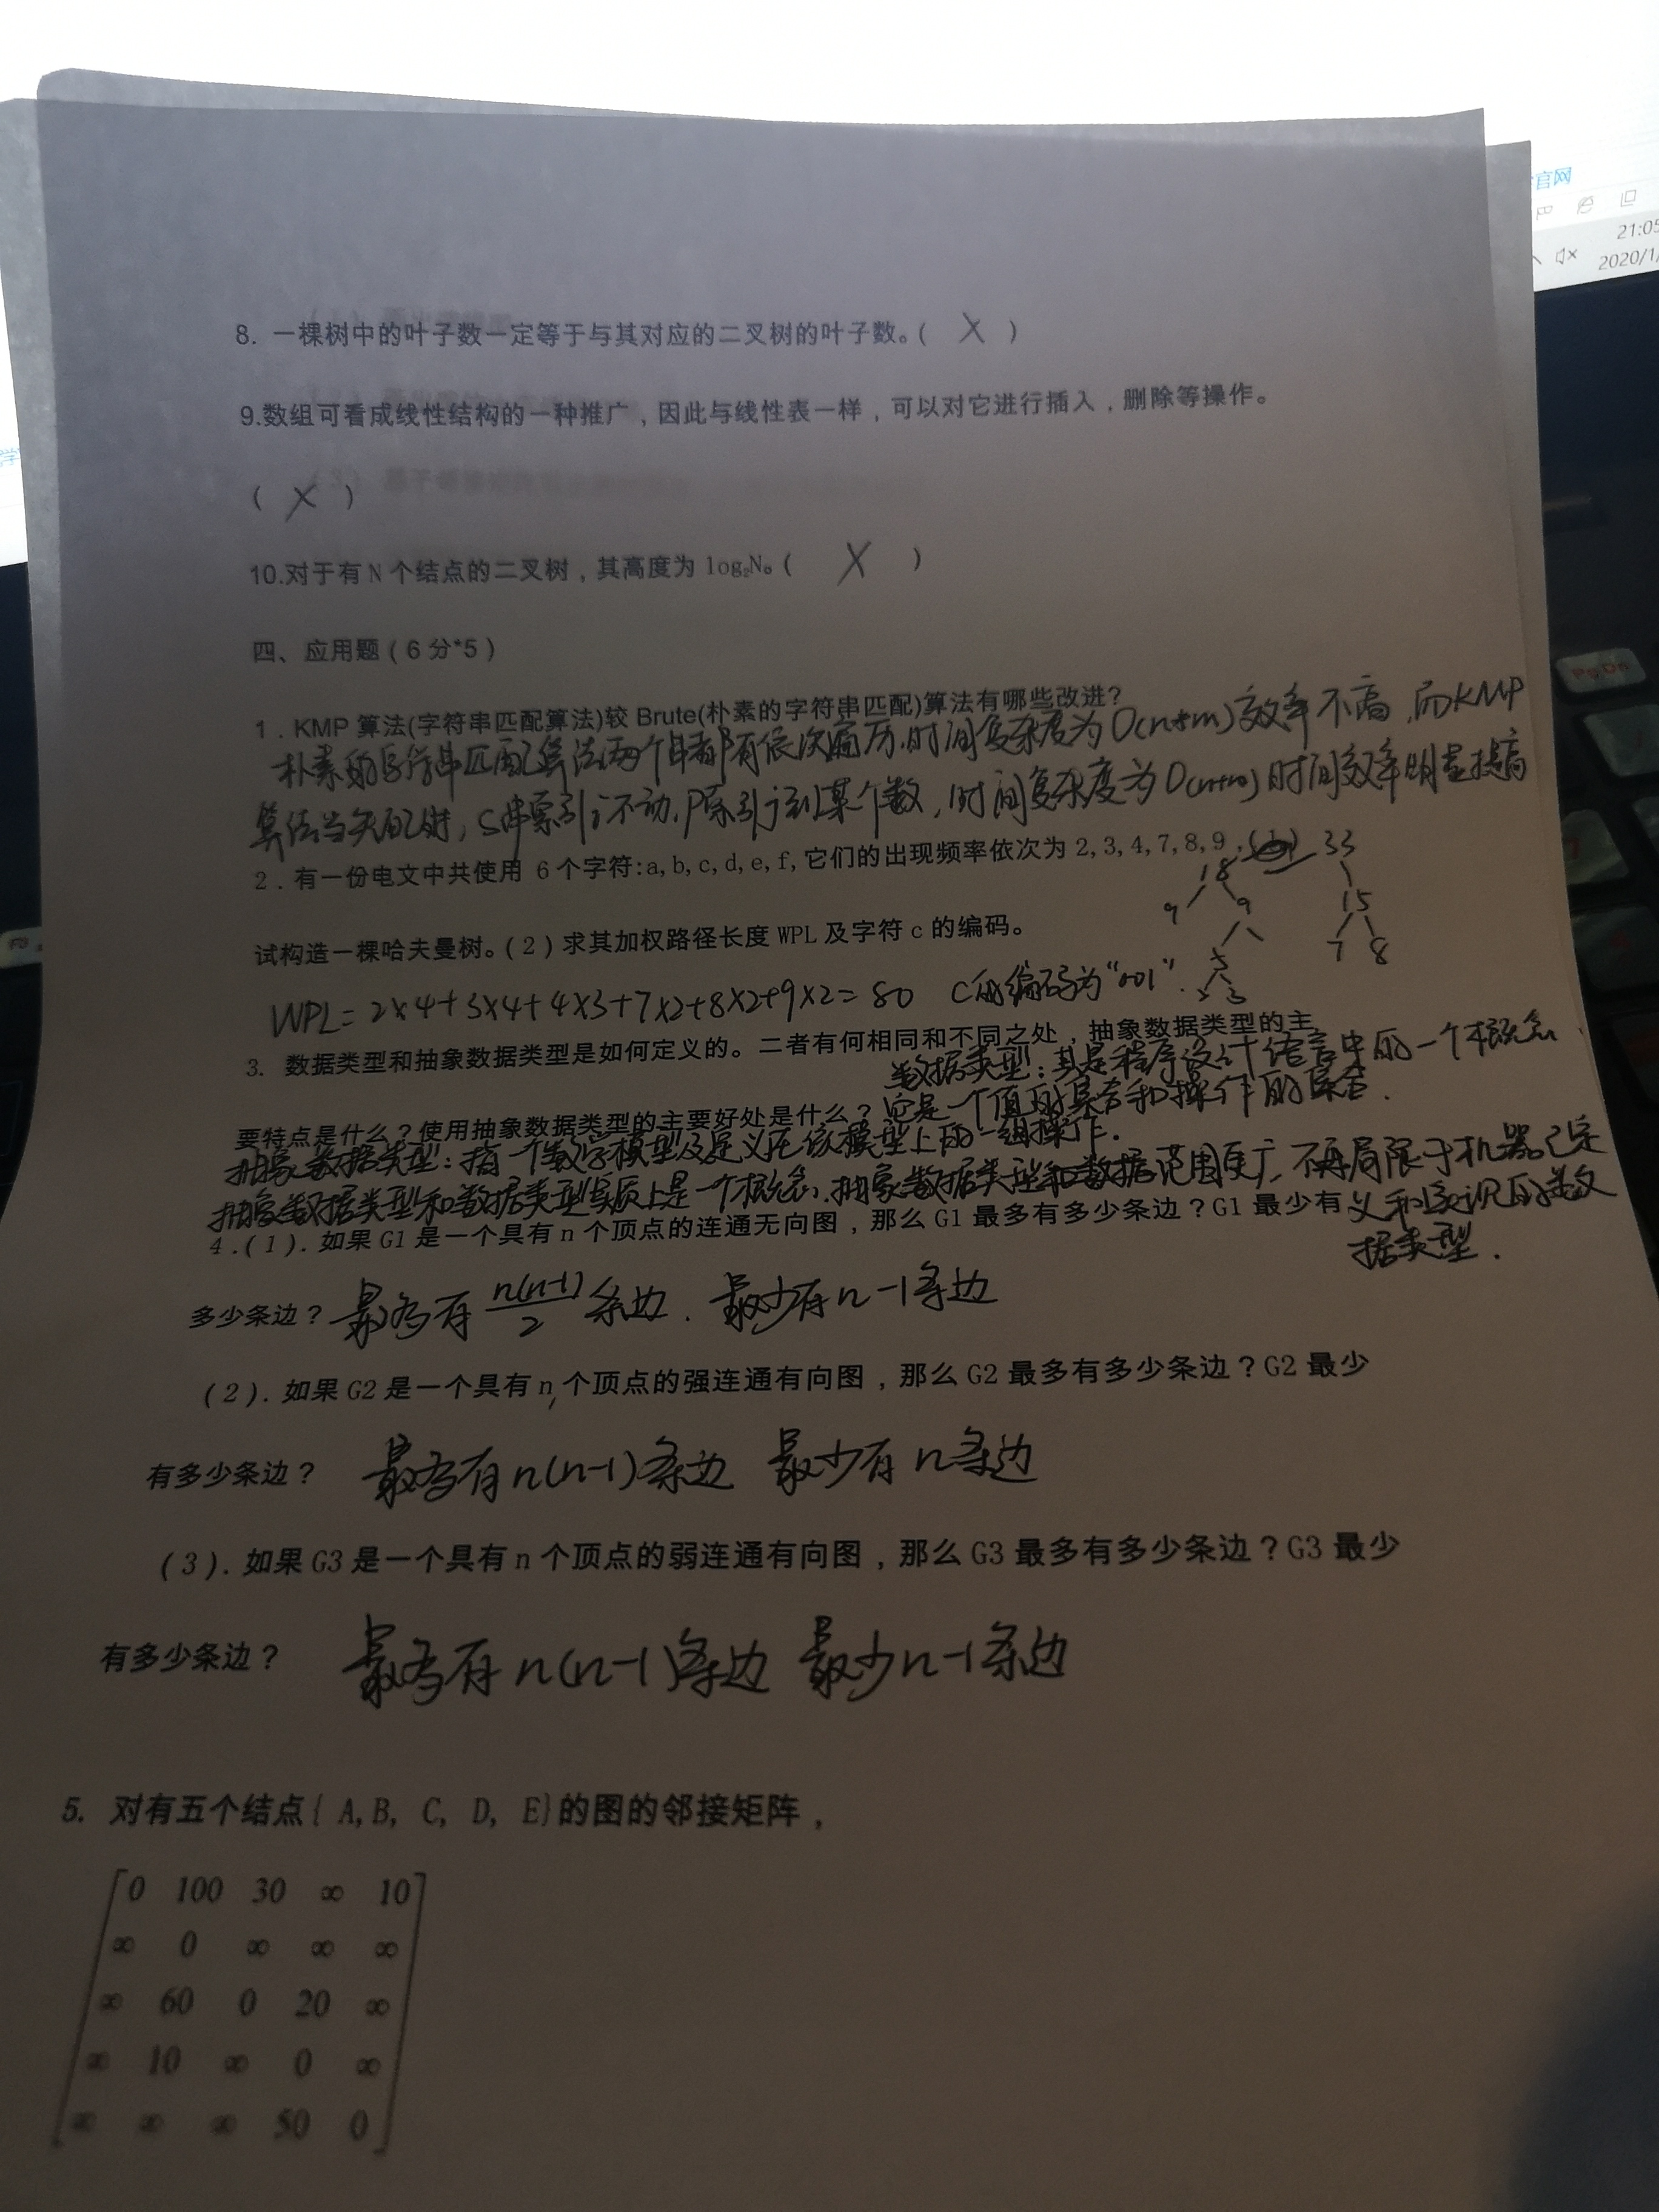 官网
21:05
2020/1/
8. 一棵树中的叶子数一定等于与其对应的二叉树的叶子数。( X )
9.数组可看成线性结构的一种推广，因此与线性表一样，可以对它进行插入，删除等操作。
( X )
10.对于有N个结点的二叉树，其高度为log₂N。( X )
四、应用题(6分*5)
1.KMP算法(字符串匹配算法)较Brute(朴素的字符串匹配)算法有哪些改进?
朴素的字符串匹配算法两个串都有依次遍历.时间复杂度为O(n*m)效率不高,而KMP
算法当失配时，S串索引i不动,P索引j到某个数，时间复杂度为O(n+m)时间效率明显提高
2.有一份电文中共使用 6个字符:a,b,c,d,e,f,它们的出现频率依次为2,3,4,7,8,9,
18 33
9 9 15
5 7 8
2 3
试构造一棵哈夫曼树。(2)求其加权路径长度WPL及字符c的编码。
WPL=2×4+3×4+4×3+7×2+8×2+9×2=80 C的编码为"001".
3. 数据类型和抽象数据类型是如何定义的。二者有何相同和不同之处，抽象数据类型的主
数据类型:其是程序设计语言中的一个概念
要特点是什么?使用抽象数据类型的主要好处是什么? 它是一个值的集合和操作的集合.
抽象数据类型:指一个数学模型及定义在该模型上的一组操作.
抽象数据类型和数据类型实质上是一个概念,抽象数据类型和数据范围更广,不再局限于机器已定
4.(1).如果G1是一个具有n个顶点的连通无向图，那么G1最多有多少条边?G1最少有 义和实现的数
据类型.
多少条边? 最多有n(n-1)/2条边. 最少有n-1条边
(2).如果G2是一个具有n个顶点的强连通有向图，那么G2最多有多少条边?G2最少
有多少条边? 最多有n(n-1)条边 最少有n条边
(3).如果G3是一个具有n个顶点的弱连通有向图，那么G3最多有多少条边?G3最少
有多少条边? 最多有n(n-1)条边 最少n-1条边
5. 对有五个结点{ A,B, C, D, E}的图的邻接矩阵，
0 100 30 ∞ 10
∞ 0 ∞ ∞ ∞
∞ 60 0 20 ∞
∞ 10 ∞ 0 ∞
∞ ∞ ∞ 50 0